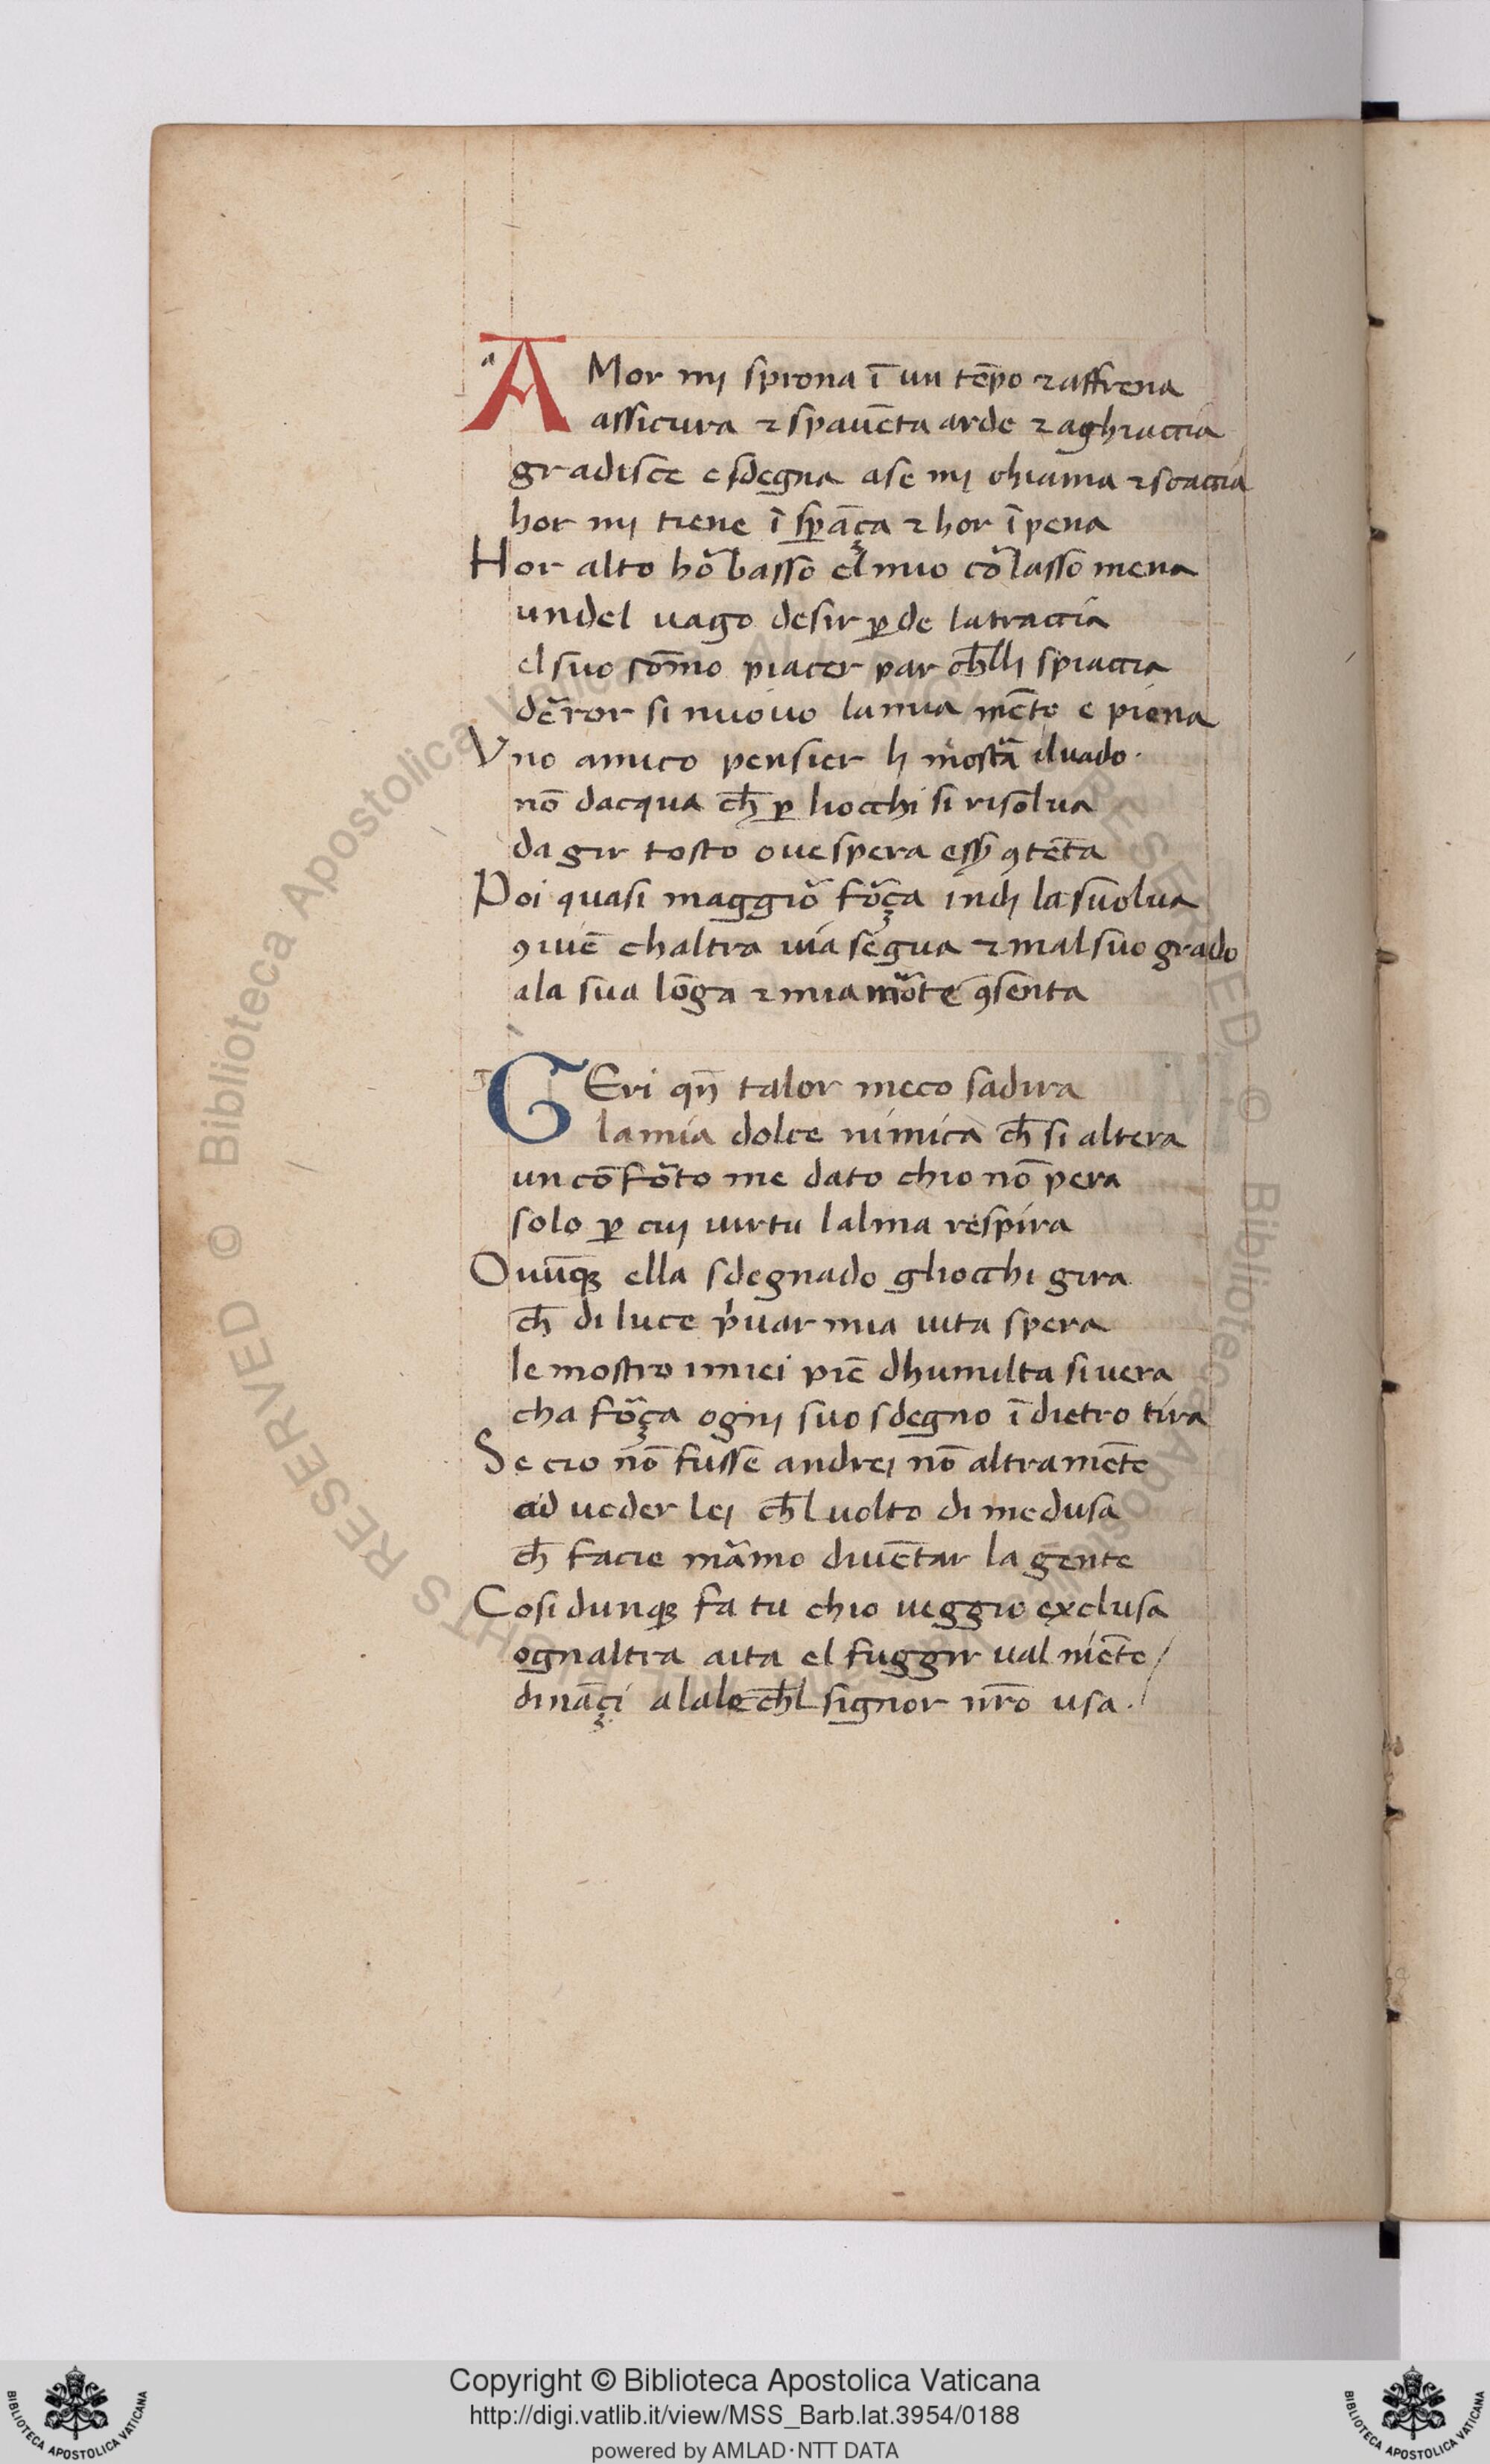 AMor mj sprona ī un tēpo ⁊ affrena
assicura ⁊ spauēta arde ⁊ aghiaccia
gradisce e sdegna a se mj chiama ⁊ scaccia
hor mj tiene ī sp̄āça ⁊ hor ī pena
Hor alto hō basso el mio cō lasso mena
undel uago desir ꝑde la traccia
el suo sōmo piacer par ch̄lli spiaccia
dēror si nuouo la mia mēte e piena
Vno amico pensier li mostā il uado.
nō dacqua ch̄ ꝑ liocchi si risolua
da gir tosto oue spera ess̄ ꝯtēta
Poi quasi maggiō fōça indi la suolua
ꝯuiē chaltra uia segua ⁊ mal suo grado
a la sua lōga ⁊ mia mōte ꝯsenta
GEri qn̄ talor meco sadira
la mia dolce nimica ch̄ si altera
un cōfōto me dato chio nō pera
solo ꝑ cuj uirtu lalma respira
Ouūqꝫ ella sdegnādo gliocchi gira
ch̄ di luce p̄uar mia uita spera
le mostro i miei piē dhumilta si uera
cha fōça ognj suo sdegno ī dietro tira
Se cio nō fusse andrej nō altramēte
ad ueder lej ch̄l uolto di medusa
ch̄ facie māmo diuētar la gente
Cosi dunqꝫ fa tu chio ueggio exclusa
ognaltra aita el fuggir ual niēte /
dināçi a lale ch̄l signor nr̄o usa.
Copyright © Biblioteca Apostolica Vaticana
http://digi.vatlib.it/view/MSS_Barb.lat.3954/0188
powered by AMLAD·NTT DATA